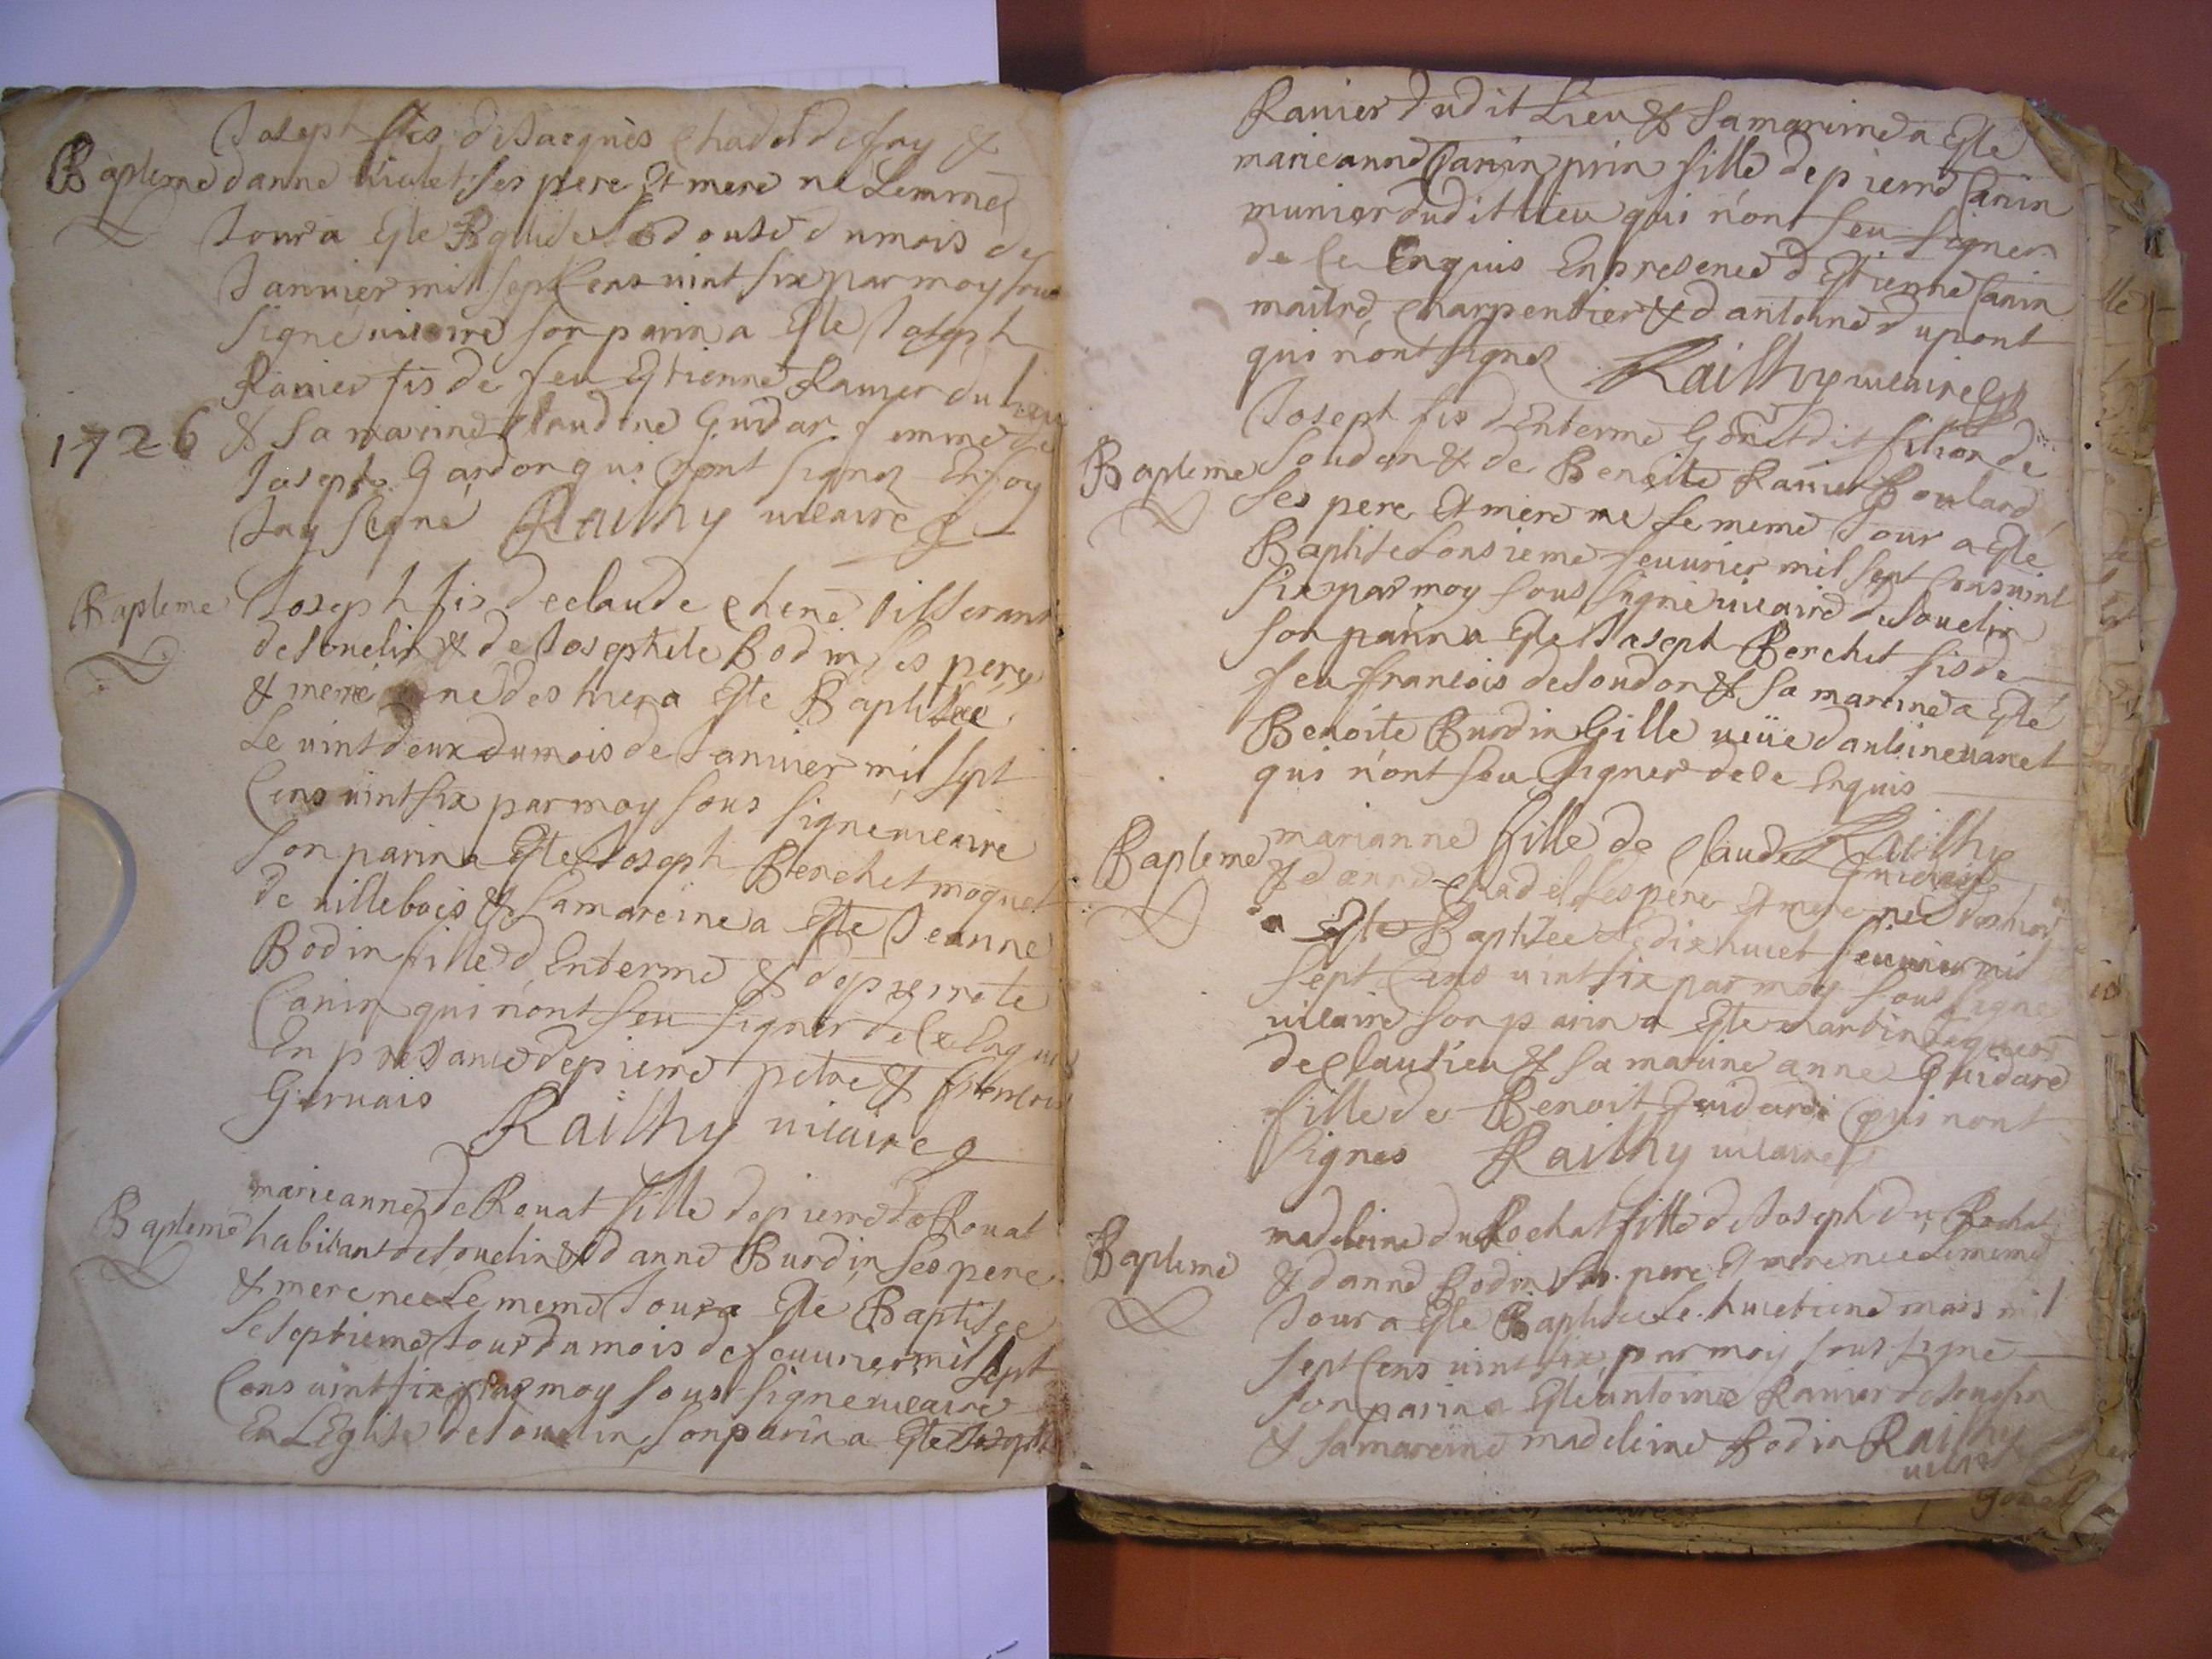 Joseph fis de Jacques Chadel de fay &
Bapteme danne uiulet ses pere Et mere né Lemmé
Jour a Este Bptisé Le douse du mois de
Januier mil sept Cens uint six par moy sous
signé uicaire son parin a Este Joseph
Rauier fis de feu Etienne Rauier du lieu
1726 & sa marine Claudine Guidar femme de
Joseph Gardon qui n'ont signez En foy
Jay signé Railhy uicaire
Bapteme Joseph fis de claude chene
de souclin & de Josephte Bodin ses pere
& mere né des hier a Este Baptisée
Le uint deux du mois de Januier mil sept
Cens uint six par moy sous signé uicaire
son parin a Este Joseph Berchet moquet
de uillebois & sa mareine a Este Jeanne
Bodin fille d Enterme & de pierrete
Canin qui n'ont seu signer de Ce Enquis
En presance de pierre petre & francois
Geruais
Railhy uicaire
marieanne de Rouat fille de pierre de Rouat
Bapteme habitant de souclin & d anne Burdin ses pere
& mere neé Le meme Jour a Este Baptisee
Le septieme Jour du mois de feuurier mil sept
Cens uint six par moy sous signé uicaire
En LEglise de souclin son parin a Este Joseph
Rauier dudit Lieu & sa mareine a Este
marieanne Canin prin fille de pierre Canin
munier dudit lieu qui n'ont seu signer
de Ce Enquis En presence d Etienne Canin
maitre Charpentier & d antoine dupont
qui n'ont signez Railhy uicaire
Joseph fis d Enterme Gonet dit filion de
Bapteme soudon & de Benoite Rauier Boulard
ses pere Et mere né Le meme Jour a Esté
Baptisé Lonsieme feuurier mil sept Cens uint
six par moy sous signé uicaire de souclin
son parin a Este Joseph Berchet fis de
feu francois de soudon & sa mareine a Este
Benoite Burdin Gille ueüe d antoine uanet
qui n'ont seu signer de Ce Enquis
Railhy
Bapteme marianne fille de Claude Guidard
& d anne Chadel ses pere Et mere neé
a Este Baptisee Le dix huiet feuurier mil
sept Cens uint six par moy sous signé
uicaire son parin a Este martin
de Clausieu & sa marine anne Guidard
fille de Benoit Guidard qui nont
signes Railhy uicaire
madeleine du Rochat fille de Joseph du Rochat
Bapteme & d anne Bodin ses pere Et mere neé Le meme
Jour a Este Baptisée Le huictieme mars mil
sept Cens uint six par moy sous signé
son parin a Este antoine Rauier de souclin
& sa mareine madeleine Bodin Railhy
uicaire